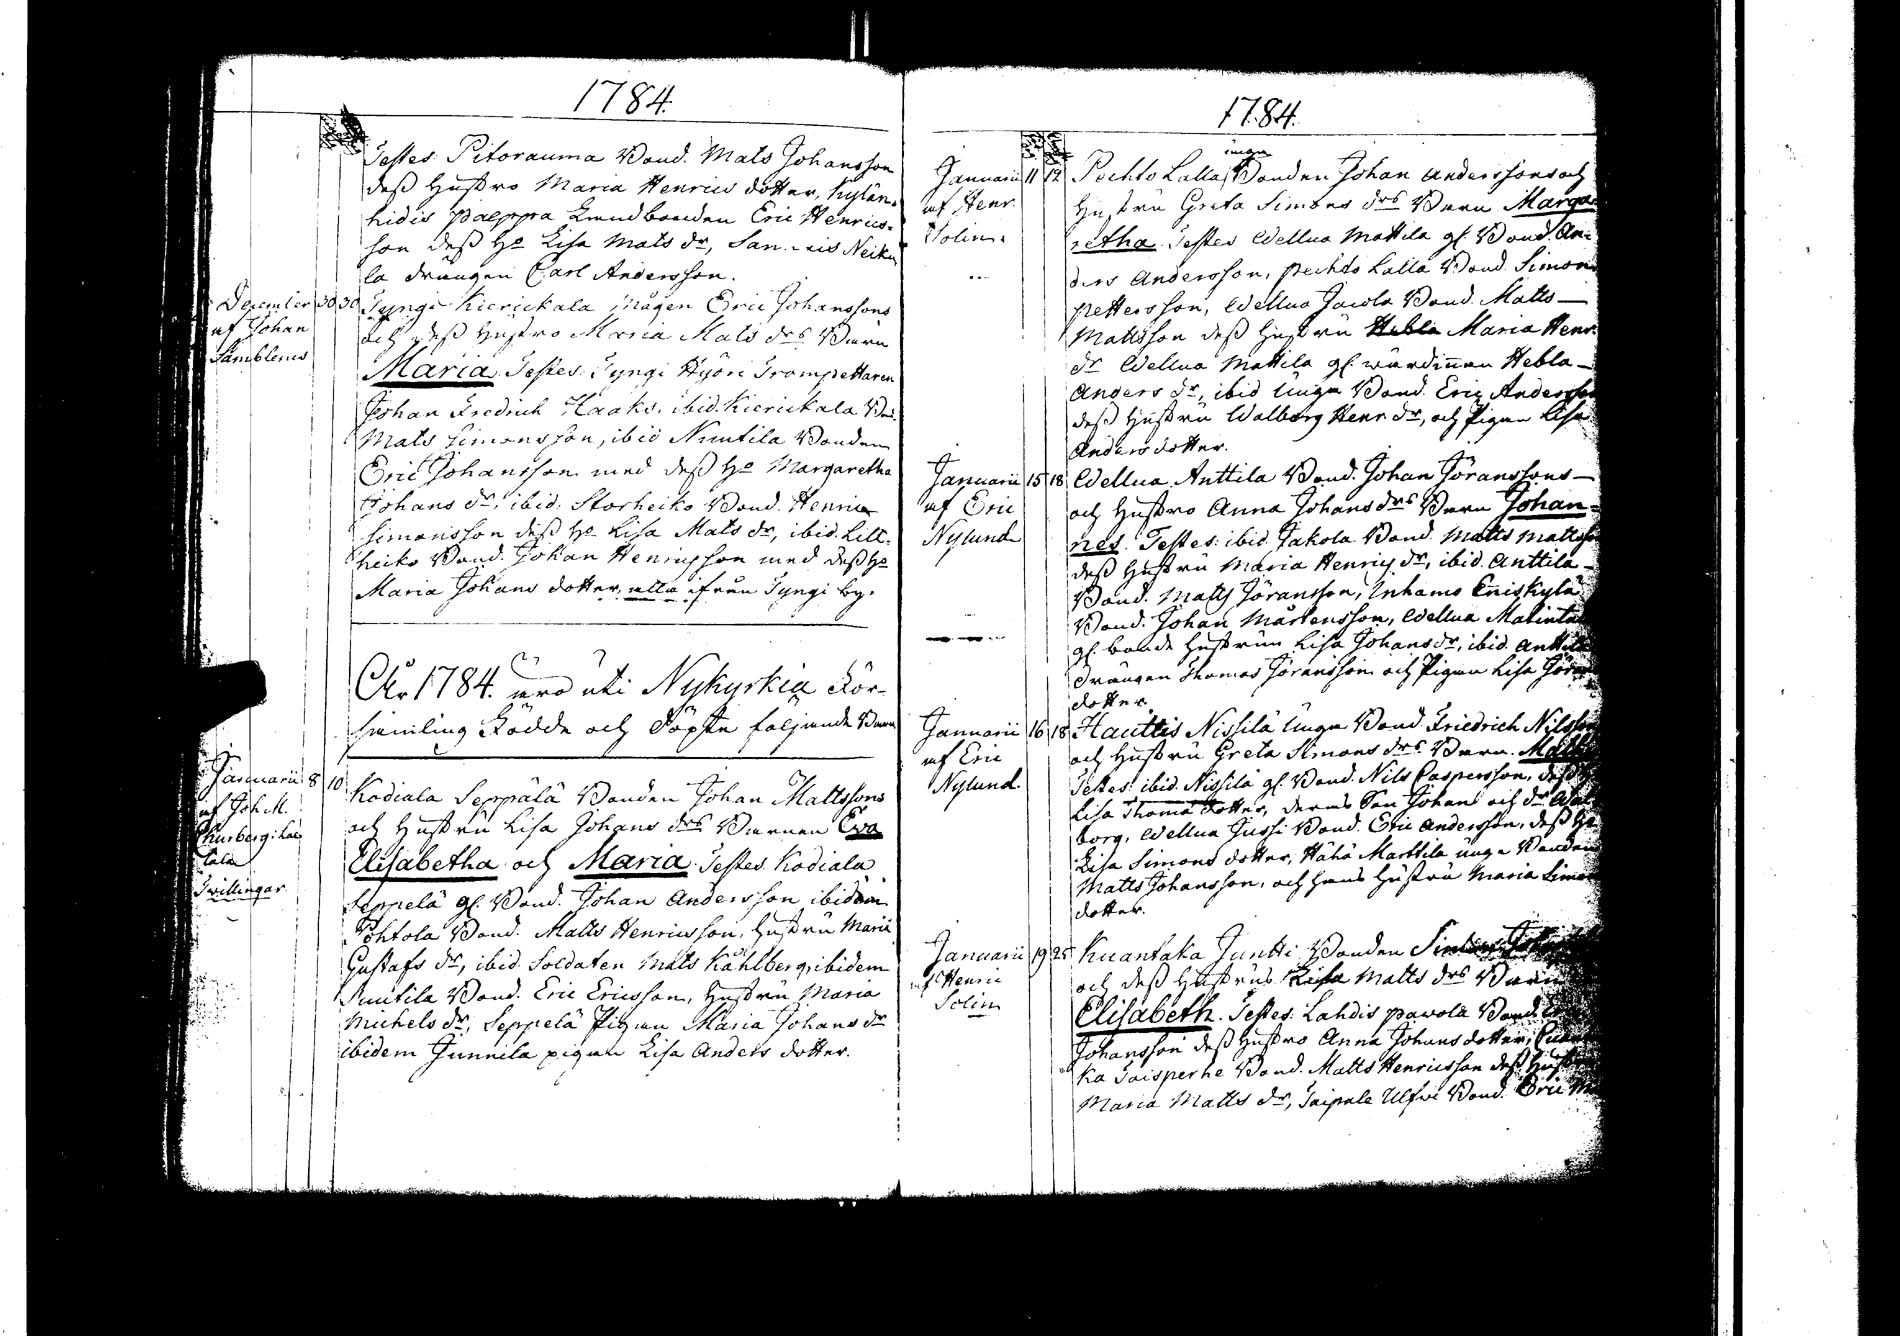 1784.
Testes Pitorauma Bond. Mats Johansson
dess Hustro Maria Henrics dotter, Kylän-
hidis paeppra Landbonden Eric Henrics-
son dess Ho Lisa Mats dr, Neiku
la drängen Carl Andersson.
December 30 30 Tyngi Kierickala Mågen Eric Johanssons
af Johan och dess Hustro Maria Mats drs Barn
Samblerus Maria. Testes. Tyngi Hyöri Trompettaren
Johan Fredrich Haaks, ibid. Kierickala Bond.
Mats Simonsson, ibid Nuutila Bonden
Eric Johansson med dess Ho Margaretha
Johans dr, ibid. Storheiko Bond. Henric
Simonsson dess Ho Lisa Mats dr, ibid. Lill-
heiko Bond. Johan Henricsson med dess Ho
Maria Johans dotter, alla ifrån Tyngi by.
Åhr 1784. äro uti Nykyrkia För-
samling Födde och Döpte följande Barn
Januarii 8 10 Kodiala Seppälä Bonden Johan Mattssons
af Joh. M. och Hustru Lisa Johans drs Barnen Eva
Elisabetha och Maria. Testes Kodiala
Twillingar Seppelä gl. Bond. Johan Andersson ibidem
Pohtola Bond. Matts Henricsson, Hustru Maria
Gustafs dr, ibid. Soldaten Mats Kåhlberg, ibidem
Nuutila Bond. Eric Ericsson, Hustru Maria
Michels dr, Seppelä Pigan Maria Johans dr
ibidem Junnila pigan Lisa Anders dotter.
1784.
Januarii 11 12 Pochto Lalla unga Bonden Johan Anderssons och
af Henr. Hustru Greta Simons drs Barn Marga-
Solin. retha. Testes Wellua Mattila gl. Bond. An-
ders Andersson, Pechto Lalla Bond. Simon
Pettersson, Wellua Jacola Bond. Matts
Mattsson dess Hustru Hebla Maria Henr.
dr Wellua Mattila gl. wärdinnan Hebla
Anders dr, ibid unga Bond. Eric Andersson
dess Hustru Walborg Henr. dr, och Pigan Lisa
Anders dotter.
Januarii 15 18 Wellua Anttila Bond. Johan Jöranssons
af Eric och Hustro Anna Johans drs Barn Johan-
Nylund nes. Testes: ibid. Jakola Bond. Matts Mattsson
dess Hustru Maria Henrics dr, ibid. Anttila
Bond. Matts Jöransson, Inhamo Eriskylä
Bond. Johan Mårtensson, Wellua
gl. bonde Hustrun Lisa Johans dr, ibid. Anttila
Drängen Thomas Jöransson och Pigan Lisa Jörans
dotter.
Januarii 16 18 Hauttis Nissilä unga Bond. Friedrich Nilssons
af Eric och Hustru Greta Simons drs Barn.
Nylund. Testes: ibid. Nissilä gl. Bond. Nils Caspersson, dess
Lisa Thomä dotter, deras Son Johan och dr Wal-
borg, Wellua Jussi Bond. Eric Andersson, dess Ho
Lisa Simons dotter, Hähä Marttila unga Bonden
Matts Johansson, och hans Hustru Maria Simons
dotter.
Januarii 19 25 Kuantaka Juntti Bonden
af Henric och dess Hustrus Lisa Matts drs Barn
Solin Elisabeth. Testes. Lahdis pavola Bond.
Johansson dess Hustro Anna Johans dotter,
ka Taisperhe Bond. Matts Henricsson dess Hustru
Maria Matts dr, Taipale Ulfwi Bond. Eric